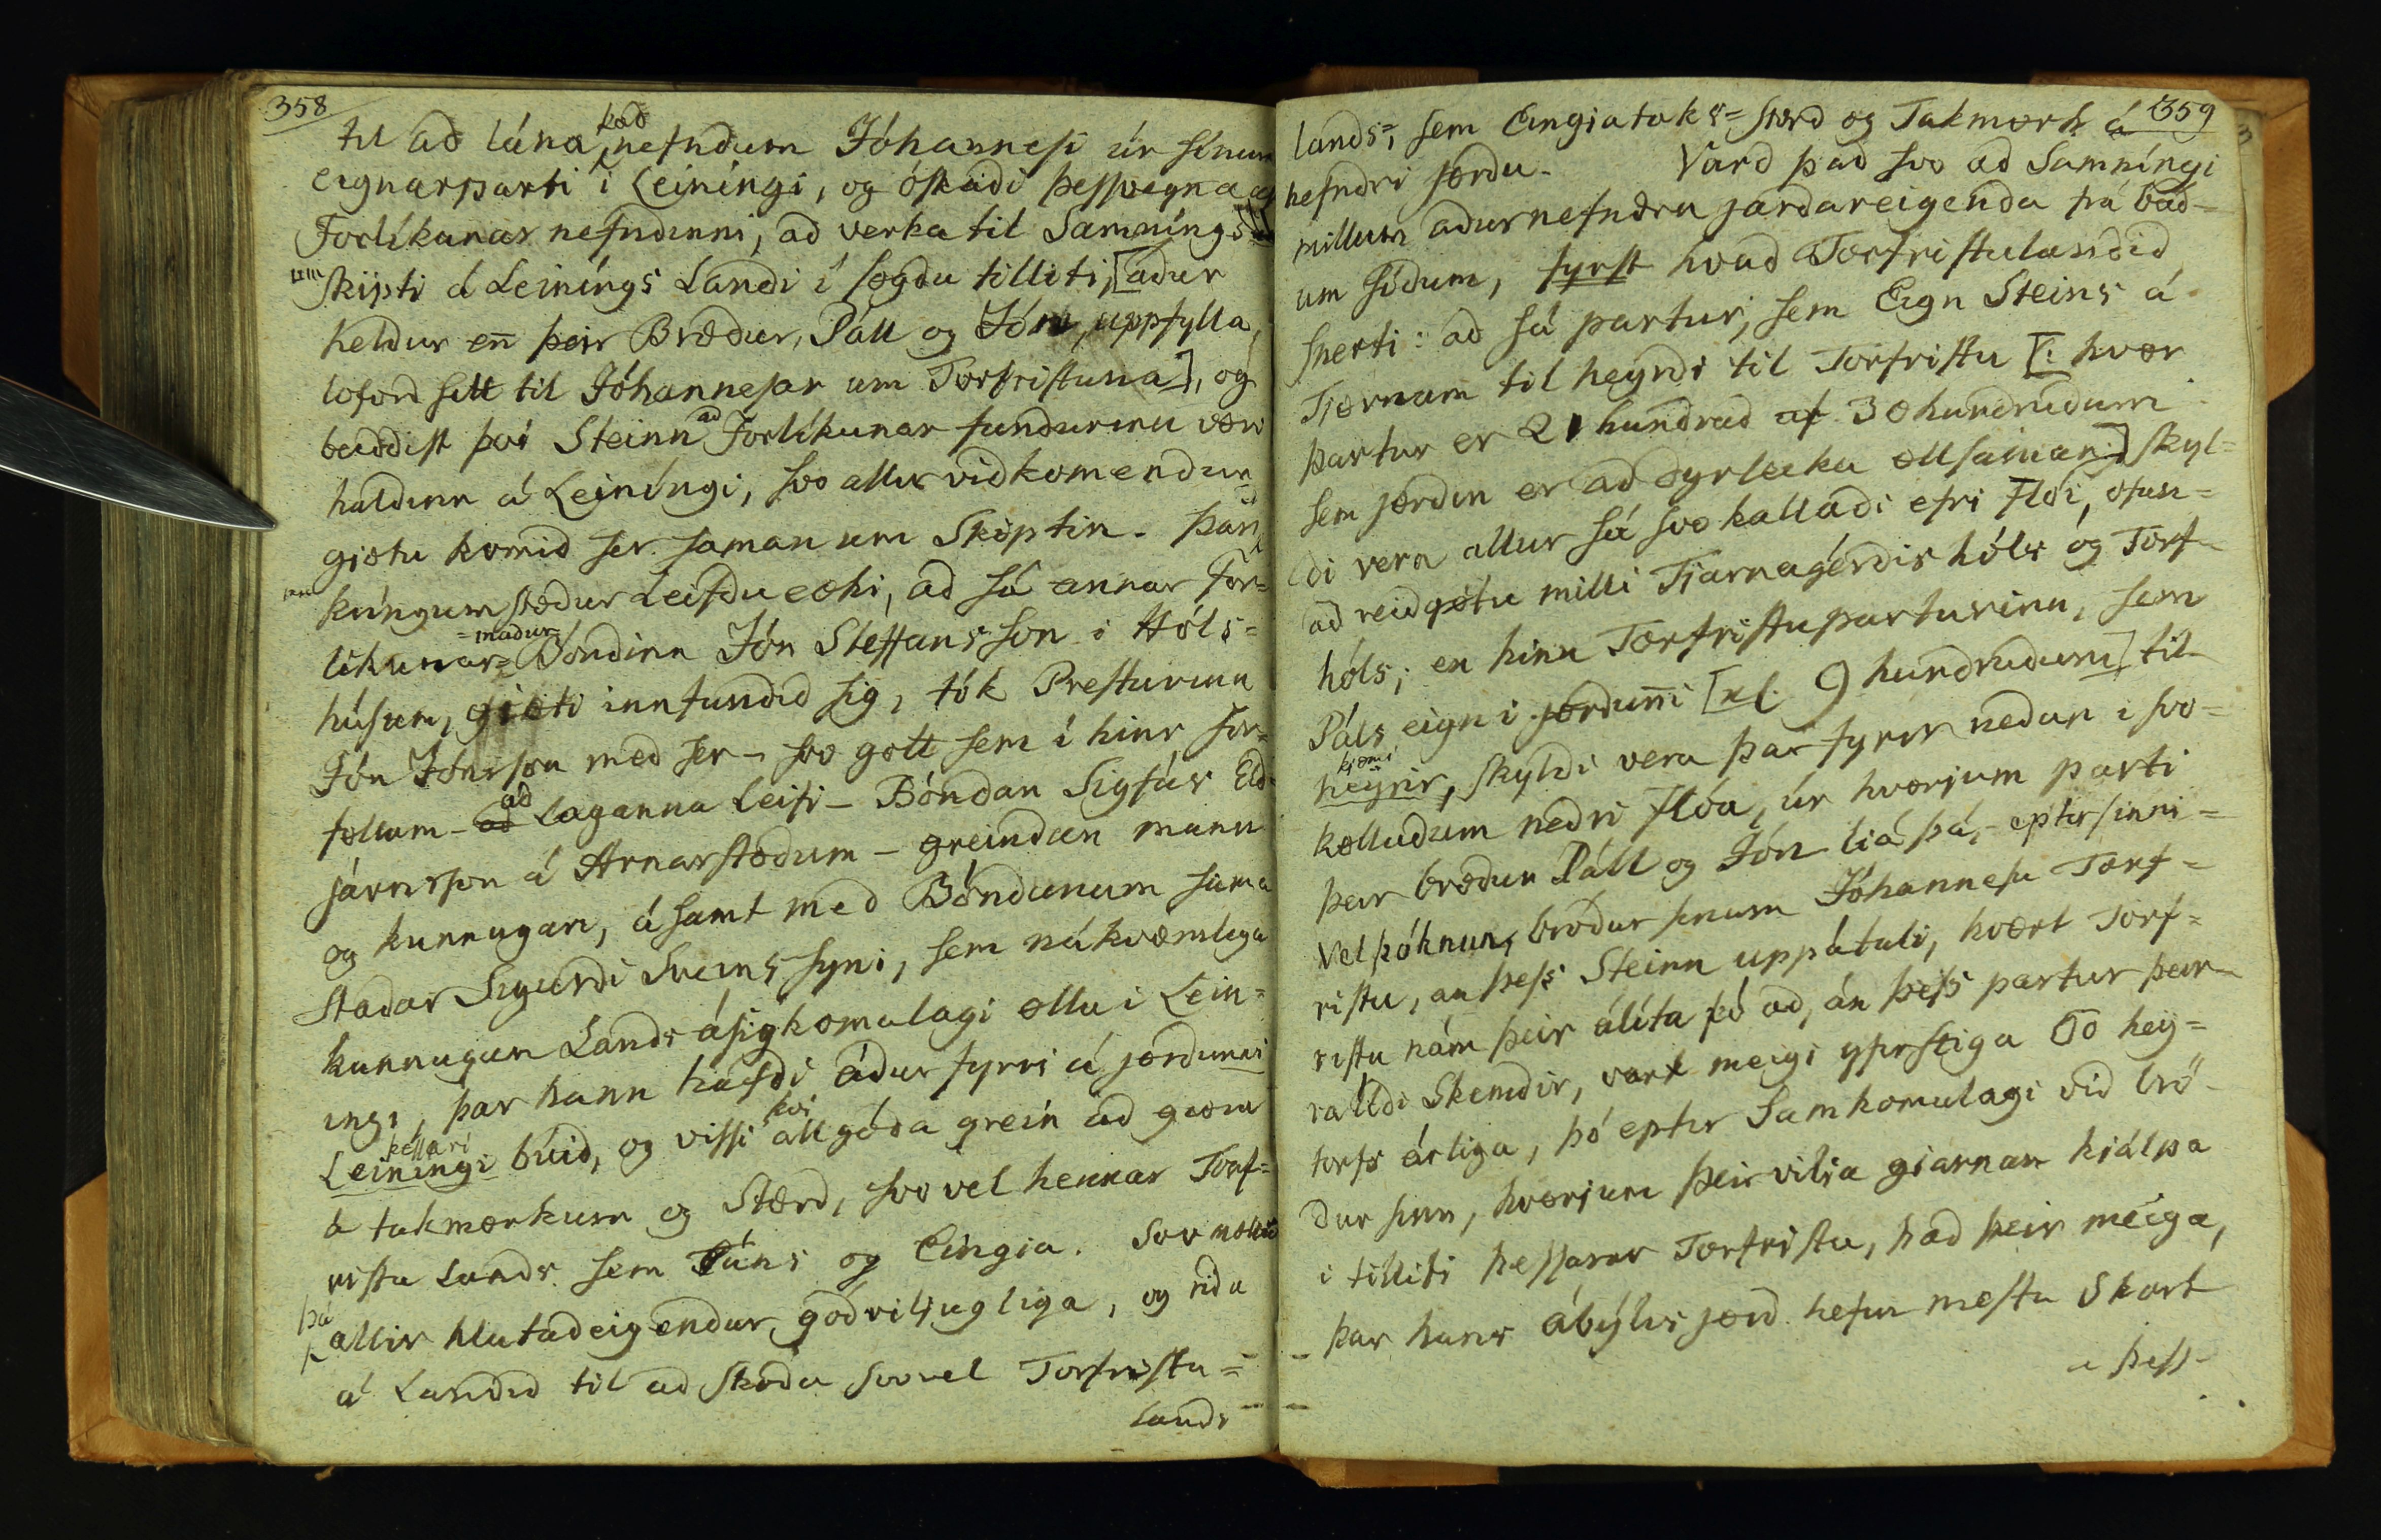 358
til að lána það nefndum Jóhannesi úr sínum
eignarparti í Leiníngi, og óskaði þessvegna af
Forlíkunar nefndinni, að verka til Samníngs
um skipti á Leiníngs Landi í søgðu tilliti, [aður
heldur en̄ þeir Bræður, Páll og Jón, uppfylla,
loforð sitt til Jóhannesar um Torfristuna], og
beiddist því Steinn að Forlíkunar fundurinn væri
haldinn á Leiníngi, svo allir viðkomendur
giætu komið ser saman um Skiptin. Þar
kríngumstæður Leifðu ecki, að sá annar For=
líkunar=maður= Bóndinn Jón Steffansson i Hóls=
húsum, giæti innfundið sig, tók Presturinn
Jón Jónsson með ser – svo gott sem í hins for=
føllum – að Laganna Leifi – Bóndan Sigfús Eld=
járnsson á Arnarstøðum – greindan mann
og kunnugan, ásamt með Bóndanum sama
staðar Sigurði Sveinssyni, sem nákvæmlega
kunnugum Lands ásigkomulagi øllu i Lein=
ingi, þar hann hafði áður fyrri á jørðunni
Leiníngi þessari búið, og vissi því allgóða grein að giøra
á takmørkum og Stærð, svo vel hennar Torf=
ristu Lands sem Túns og Eingia. Svo mættu
þá allir hlutaðeigendur góðviljugliga, og riðu
á Landið til að skoða svovel Torfristu=
Lands
359
lands=, sem Eingiataks= stærð og Takmørk á
nefndri jørðu. Varð það svo að Samníngi
millum aðurnefndra jarðareigenda frá báð=
um síðum, fyrst hvað Torfristulandið
sperti: að sá partur, sem Eign Steins á
Tjørnum tilheyrði til Torfristu [: hvør
partur er 21 hundrað af 30 hundruðum
sem jørðin er að dyrleika øllsaman:] skyl=
di vera allur sá svo kallaði efri Flói, ofan=
að reiðgøtu milli Tjarnagérdishóls og Torf=
hóls; en hinn Torfristuparturinn, sem
Páls eign i jørðun̄i [nl. 9 hundruðum] til
heyrir, kjæmi skyldi vera þar fyrir neðan i svo=
kølluðum neðri Flóa, úr hvørjum parti
þeir bræður Páll og Jón liá þá,= eptir sinni=
Velþóknun, bróður sínum Jóhannesi Torf=
ristu, án þess Steinn uppátali, hvørt Torf=
ristu nám þeir álíta þó að, án þess partur þeir=
ra líði Skemdir, vart meigi yfirstiga 60 hey=
torfs árliga, þó eptir Samkomulagi við bró=
ður sinn, hvørjum þeir vilja giarnan hiálpa
i tilliti þessarar Torfristu, það þeir meiga,
þar hans ábýlis jørð hefur mesta Skort
á þess=